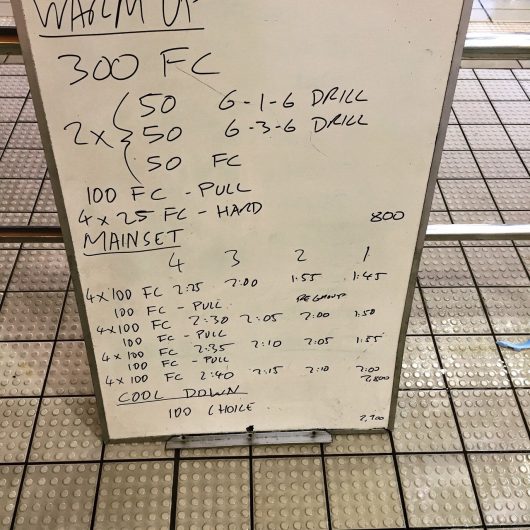 WARM UP
300 FC
2x { 50 6-1-6 DRILL
50 6-3-6 DRILL
50 FC
100 FC - PULL
4 x 25 FC - HARD 800
MAINSET
4 3 2 1
4x100 FC 2:25 2:00 1:55 1:45
100 FC - PULL REGROUP
4x100 FC 2:30 2:05 2:00 1:50
100 FC - PULL
4x100 FC 2:35 2:10 2:05 1:55
100 FC - PULL
4x100 FC 2:40 2:15 2:10 2:00
2,800
COOL DOWN
100 CHOICE